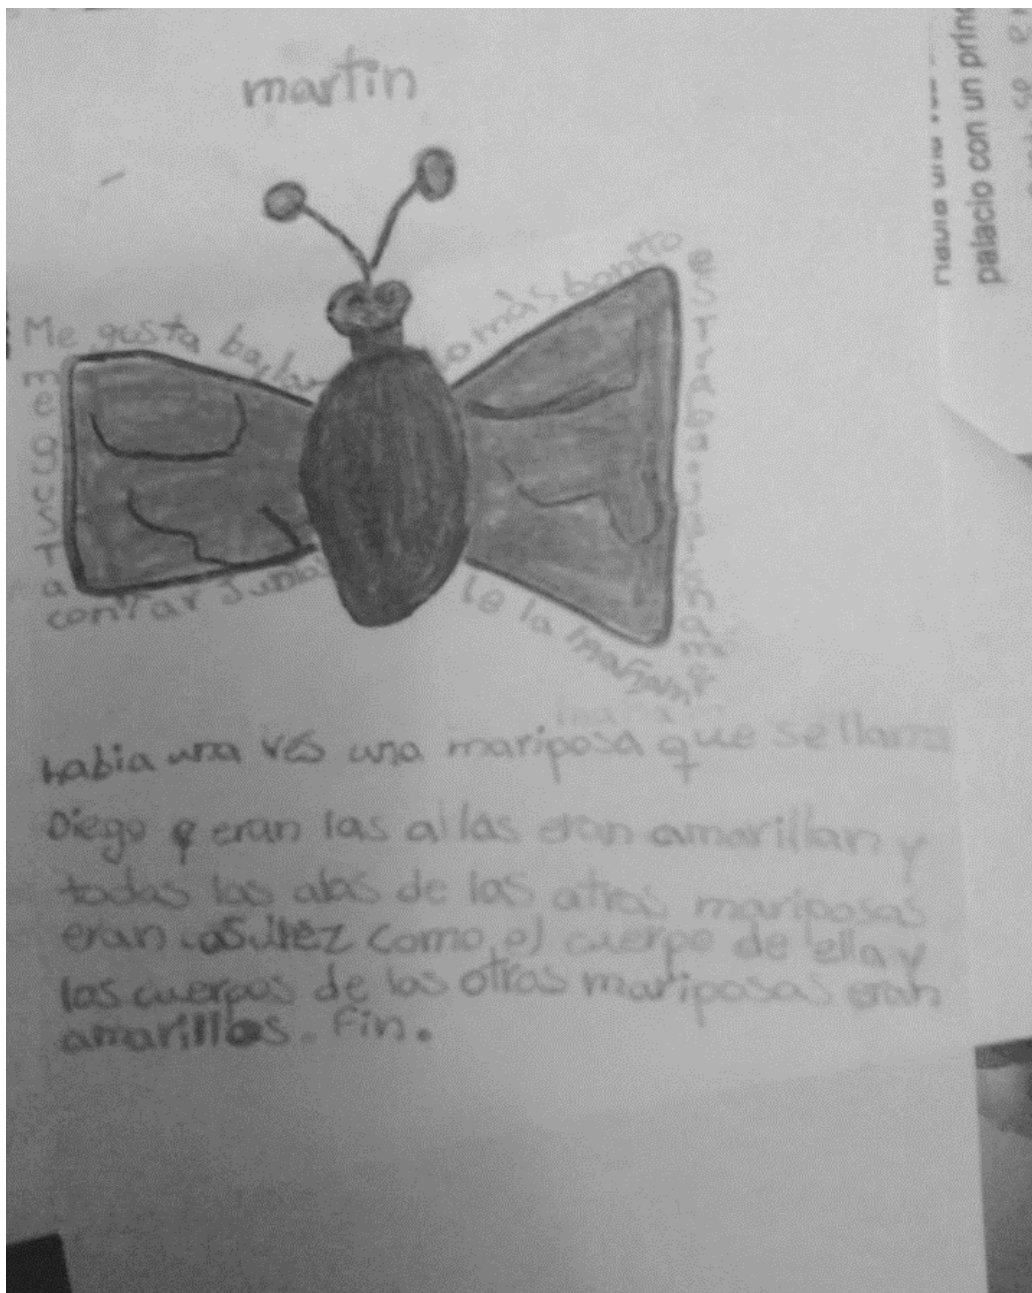 martin
Me gusta bailar
me gusta
contar Juntos
lo más bonito
es
de la mañana
habia una vés una mariposa que se llama
Diego q eran las allas eran amarillan y
todas las alas de las otras mariposas
eran asulez como el cuerpo de ella y
los cuerpos de las otras mariposas eran
amarillos. Fin.
palacio con un prínc